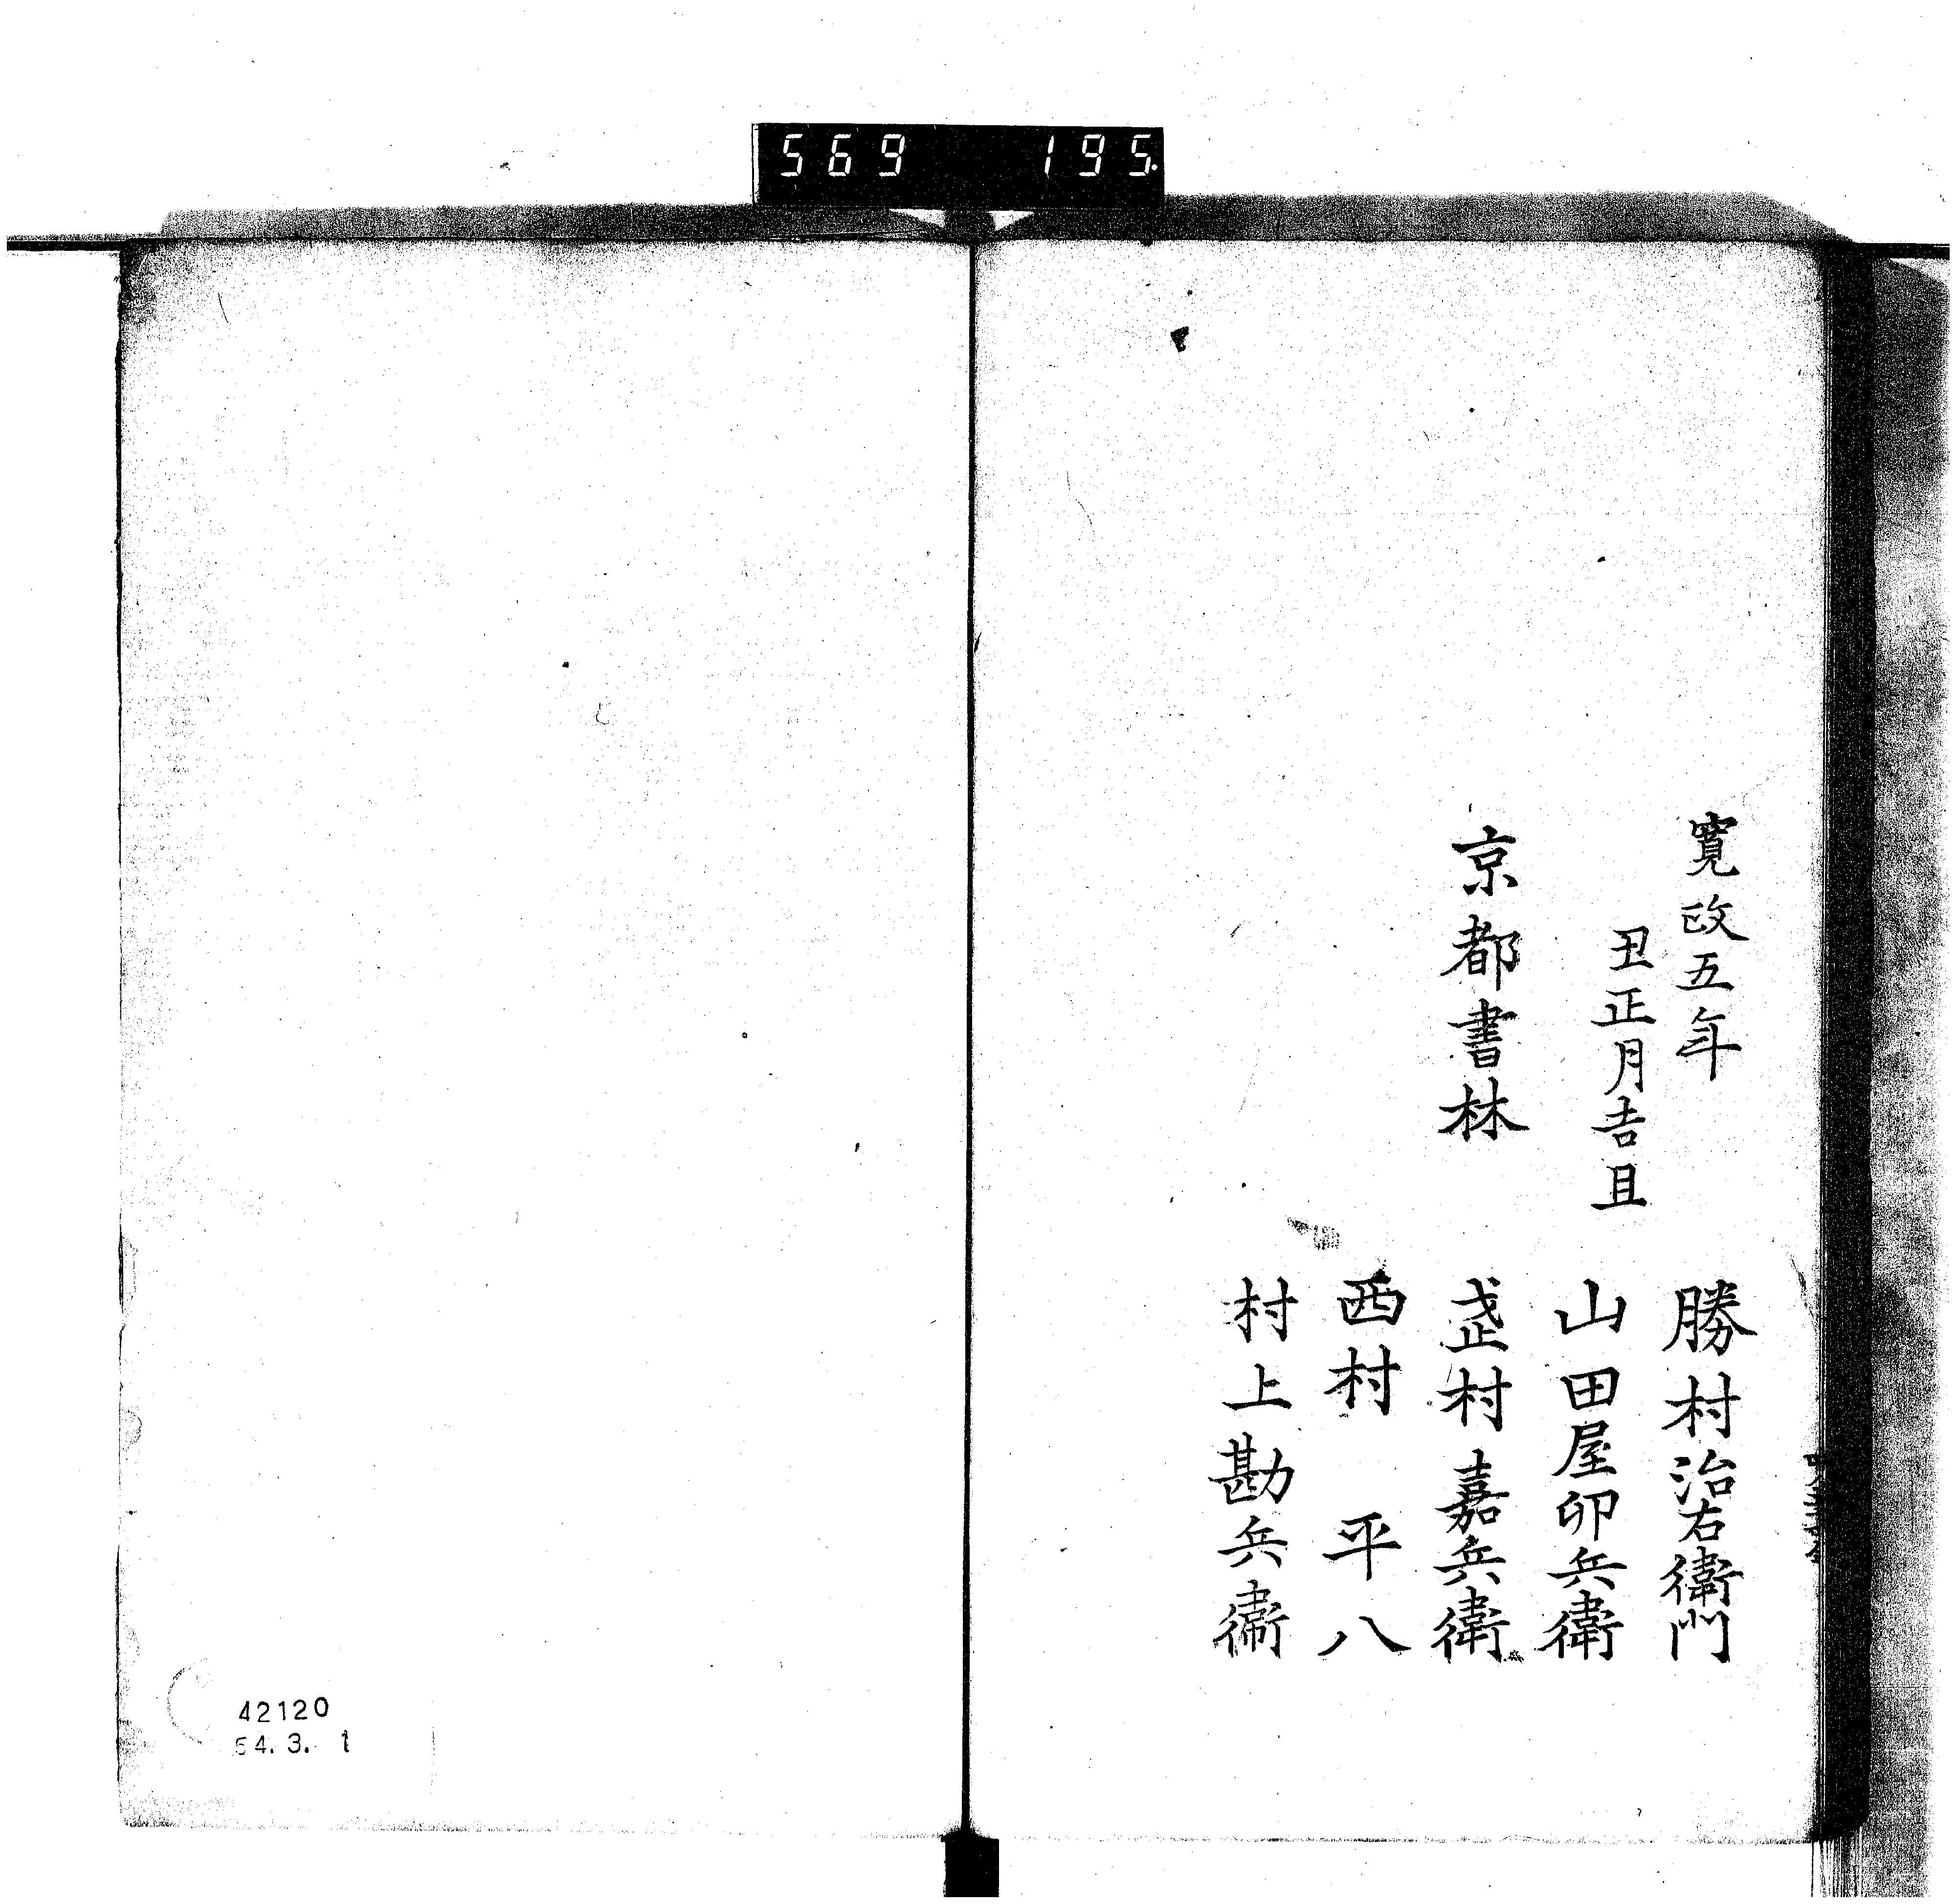 569 195
寛政五年
丑正月吉旦
京都書林
勝村治右衛門
山田屋卯兵衛
村嘉兵衛
西村平八
村上勘兵衛
42120
54.3.1